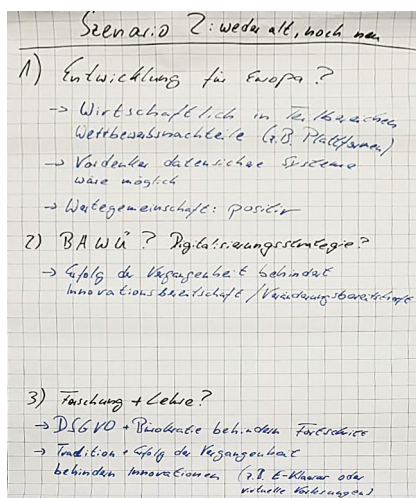 Szenario 2: weder alt, noch neu
1) Entwicklung für Europa?
→ Wirtschaftlich in Teilbereichen
Wettbewerbsnachteile (z.B. Plattformen)
→ Vordenker datensichere Systeme
wäre möglich
→ Wertegemeinschaft: positiv
2) BAWÜ? Digitalisierungsstrategie?
→ Erfolg der Vergangenheit behindert
Innovationsbereitschaft / Veränderungsbereitschaft
3) Forschung + Lehre?
→ DSGVO + Bürokratie behindern Fortschritt
→ Tradition + Erfolg der Vergangenheit
behindern Innovationen (z.B. E-Klausur oder
virtuelle Vorlesungen)